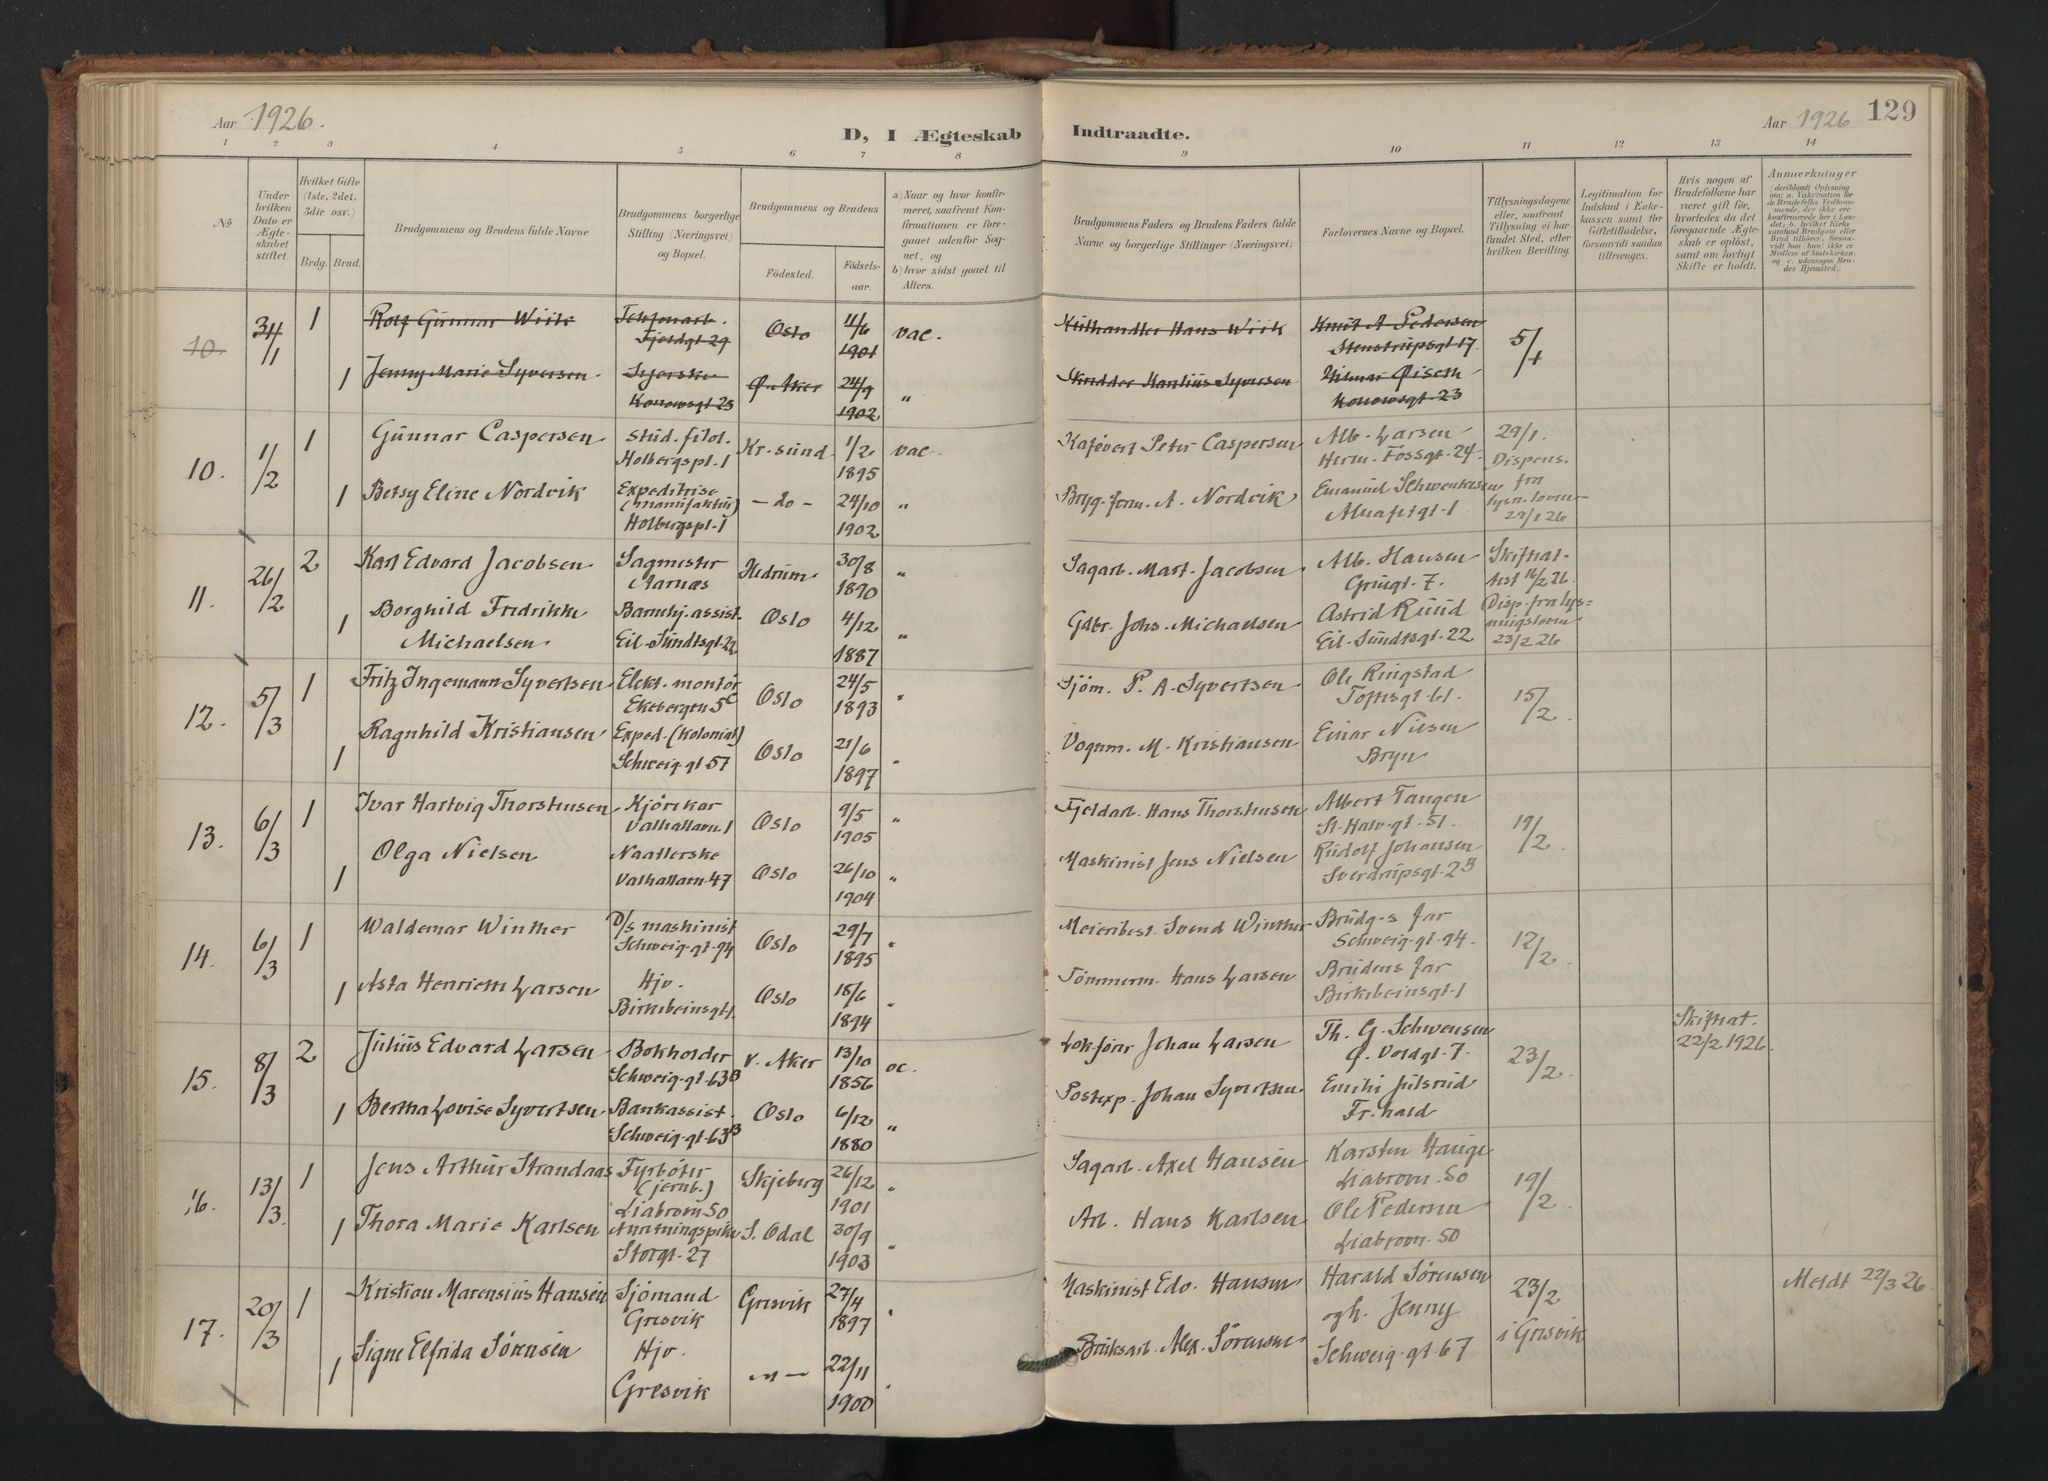 Aar 1926.
D, I Ægteskab Indtraadte.
Aar 1926 129
1 2 3 4 5 6 7 8 9 10 11 12 13 14
No
Under hvilken Dato er Ægteskabet stiftet.
Hvilket Gifte (1ste, 2det, 3die osv.)
Brdg. Brud.
Brudgommens og Brudens fulde Navne
Brudgommens borgerlige Stilling (Næringsvei) og Bopæl.
Brudgommens og Brudens
Fødested. Fødselsaar.
a) Naar og hvor konfirmeret, saafremt Konfirmationen er foregaaet udenfor Sognet, og
b) hvor sidst gaaet til Alters.
Brudgommens Faders og Brudens Faders fulde Navne og borgerlige Stillinger (Næringsvei)
Forlovernes Navne og Bopæl.
Tillysningsdagene eller, saafremt Tillysning ei har fundet Sted, efter hvilken Bevilling.
Legitimation for Indskud i Enkekassen samt for Giftetilladelse, forsaavidt saadan tiltrænges.
Hvis nogen af Brudefolkene har været gift før, hvorledes da det foregaaende Ægteskab er opløst, samt om lovligt Skifte er holdt.
Anmærkninger
10. 31/1 1 Rolf Gunnar Wiik Fjeldgt 29 Oslo 11/6 1901 vac. Kulhandler Hans Wiik Knut A Pedersen Stenstrupsgt 17 5/1
1 Jenny Marie Syversen Syerske Konowsgt 23 Ø. Aker 24/9 1902 " Skrædder Syversen Hilmar Konowsgt 23
10. 1/2 1 Gunnar Caspersen stud. filol. Holbergspl. 1 Kr. sund 1/2 1895 vac. Kafévert Peter Caspersen Alb. Larsen Herm. Fossgt. 24. 29/1. Dispens. fra
1 Betsy Eline Nordvik Expeditrise (manufaktur) Holbergspl. 1 - do - 24/10 1902 " Brygg.form. A. Nordvik Emanuel 29/1 26
11. 26/2 2 Karl Edvard Jacobsen Sagmester Aarnæs Hedrum 30/8 1890 " Sagarb. Mart. Jacobsen Alb. Hansen Grüngt. 7. Skifteattest 16/2 26.
1 Borghild Fredrikke Michaelsen Barnehj. assist. Eil. Sundtsgt. 22 Oslo 4/12 1887 " Johs. Michaelsen Astrid Ruud Eil. Sundtsgt. 22 Disp. fra lysningsloven 23/2 26
12. 5/3 1 Fritz Ingemann Syvertsen Elekt. montør Ekebergvn 5C Oslo 24/5 1893 " Sjøm. P. A. Syvertsen Ole Ringstad Toftesgt. 61. 15/2.
1 Ragnhild Kristiansen Exped. (Kolonial) Schweig. gt. 57 Oslo 21/6 1897 " Vognm. M. Kristiansen Einar Nilsen Bryn
13. 6/3 1 Ivar Hartvig Thorstensen Kjørekar Valhallavn. 1 Oslo 9/5 1905 " Fjeldarb. Hans Thorstensen Albert Tangen St. Halv. gt. 51. 19/2.
1 Olga Nielsen Naatlerske Valhallavn 47 Oslo 26/10 1904 " Maskinist Jens Nielsen Rudolf Johansen Sverdrupsgt. 2B
14. 6/3 1 Waldemar Winther D/s maskinist Schweig. gt. 94 Oslo 29/7 1895 " Meieribest. Svend Winther Brudg.s far Schweig. gt. 94. 12/2.
1 Asta Henriette Larsen Hjv. Birkebeinsgt. 1. Oslo 18/6 1894 " Tømmerm. Hans Larsen Brudens far Birkebeinsgt. 1
15. 8/3 2 Julius Edvard Larsen Bokholder Schweig. gt. 63B V. Aker 13/10 1856 oc. Lokfører Johan Larsen Th. G. Schwensen G. Voldgt. 7. 23/2. Skifteat. 22/2 1926.
1 Bertha Lovise Syvertsen Bankassist. Schweig. gt. 63B Oslo 6/12 1880 " Postexp. Johan Syvertsen Emilie Julsrud Fr. hald
16. 13/3. 1 Jens Arthur Strandaas Fyrbøter (jernb.) Liabrovn. 50 Skjeberg 26/12 1901 " Sagarb. Axel Hansen Karsten Hauge Liabrovn. 50 19/2.
1 Thora Marie Karlsen Anretningspike Storgt. 27 S. Odal 30/9 1903 " Arb. Hans Karlsen Ole Pedersen Liabrovn. 50
17. 20/3 1 Kristian Marensius Hansen Sjømand Gresvik Gresvik 27/4 1897 " Maskinist Edv. Hansen Harald Sørensen og h. Jenny 23/2 i Gresvik Meldt 22/3 26.
1 Signe Elfrida Sørensen Hjv. Gresvik - " - 22/11 1900 Bruksarb. Alex. Sørensen Schweig. gt. 67